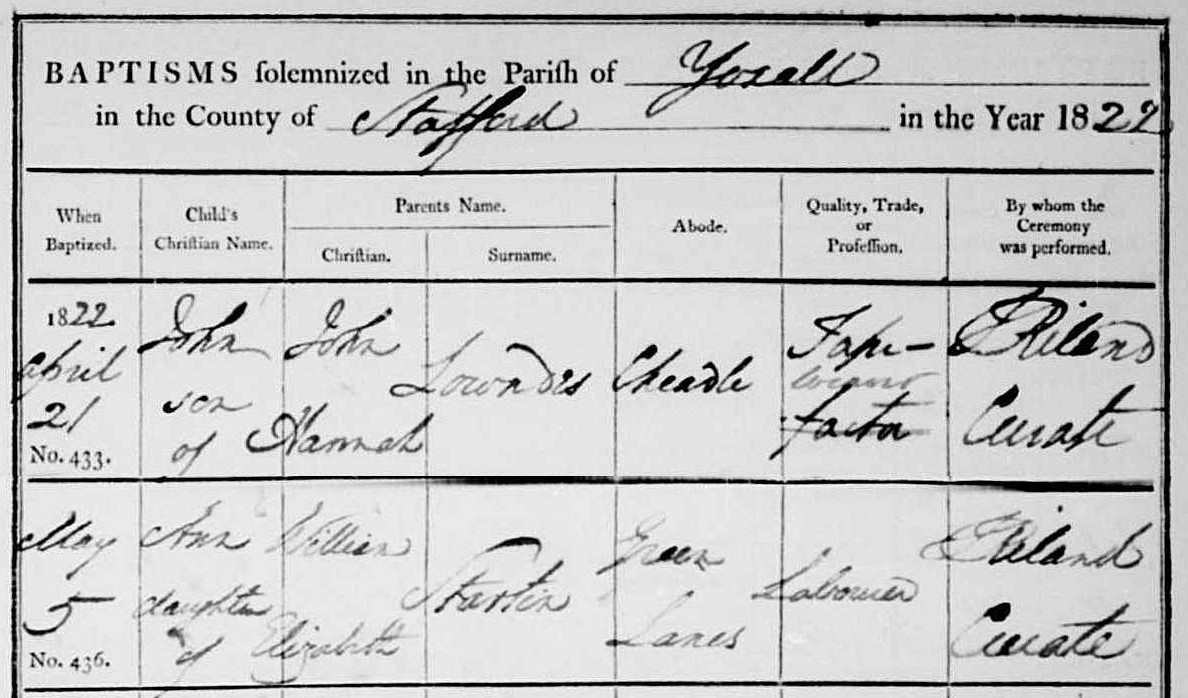 BAPTISMS ſolemnized in the Pariſh of Yoxall
in the County of Stafford in the Year 1822
When Baptized.
Child's Chriſtian Name.
Parents Name.
Chriſtian.
Surname.
Abode.
Quality, Trade, or Profeſſion.
By whom the Ceremony was performed.
1822.
April
21
No. 433.
John
son
of
John
Hannah
Lowndes
Cheadle
Tape-
factor
Riland
Curate
May
5
No. 436.
Ann
daughter
of
William
Elizabeth
Startin
Green
Lanes
Labourer
Riland
Curate